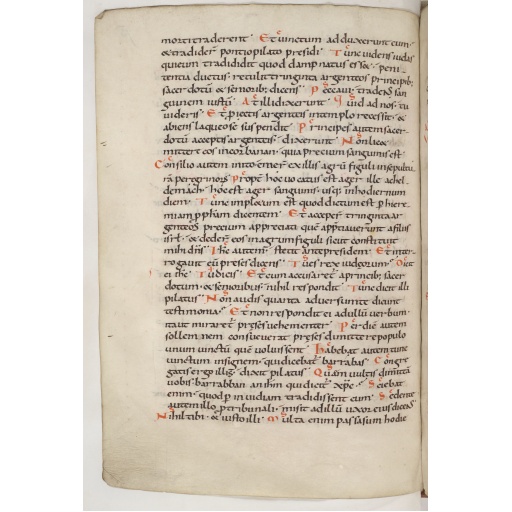 morti traderent Et uinctum adduxerunt eum
& tradider pontio pilato presidi Tunc uidens iudas
qui eum tradidit quod dampnatus ess& peni
tentia ductus retulit triginta argenteos principib;
sacerdotū & seniorib; dicens Peccaui tradens san
guinem iustū At illi dixerunt Quid ad nos tu
uideris Et piectis argenteis in templo recessit &
abiens laqueo se suspendit Principes autem sacer
dotū acceptis argenteis dixerunt Non lic&
mittere eos in corbanan quia precium sanguinis est
Consilio autem inito emer ex illis agrū figuli in sepultu
rā peregrinorū Propt hoc uocatus est ager ille achel
demach hoc est ager sanguinis usq; in hodiernum
diem Tunc impl&um est quod dictum est p hiere
miam pph&am dicentem Et acceper triginta ar
genteos precium appreciati quē appreciauerunt a filiis
isrl & deder eos in agrum figuli sicut constituit
mihi dn̄s Ihc autem st&it ante presidem Et inter
rogauit eū preses dicens Tu es rex iudeorum Dicit
ei ihc Tu dicis Et cum accusar& a principib; sacer
dotum & seniorib; nihil respondit Tunc dicit illi
pilatus Non audis quanta aduersum te dicunt
testimonia Et non respondit ei ad ullū uerbum
ita ut mirar& preses uehementer Per diē autem
sollemnem consueuerat preses dimittere populo
unum uinctū quē uoluissent Habebat autem tunc
uinctum insignem qui dicebat barrabas Congre
gatis ergo illis dixit pilatus Quem uultis dimittā
uobis barrabban an ihm qui dicit xpc Sciebat
enim quod p inuidiam tradidissent eum Sedente
autem illo pro tribunali misit ad illū uxor eius dicens
Nihil tibi & iusto illi Multa enim passa sum hodie